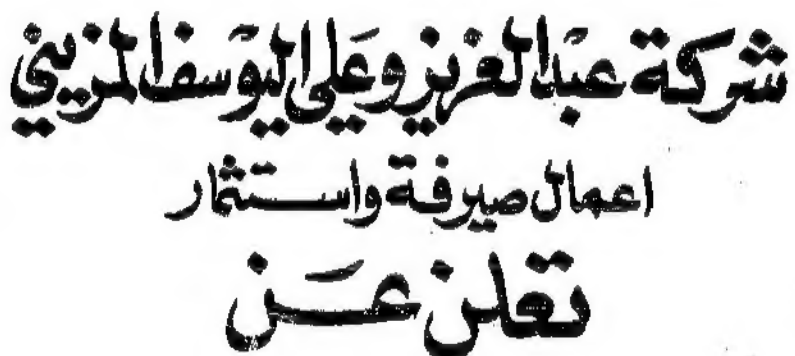 شركة عبدالعزيز وعلي اليوسف المزيني
اعمال صيرفة واستثمار
تعلن عن